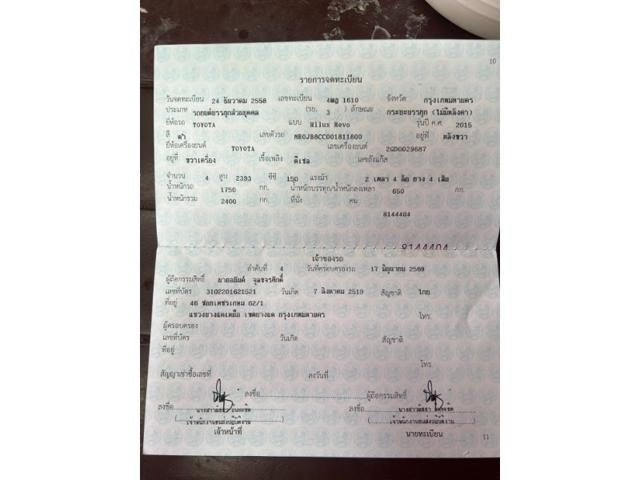 10
รายการจดทะเบียน
วันจดทะเบียน 24 ธันวาคม 2558 เลขทะเบียน 4ฒฎ 1610 จังหวัด กรุงเทพมหานคร
ประเภท รถยนต์บรรทุกส่วนบุคคล (รย. 3 ) ลักษณะ กระบะบรรทุก (ไม่มีหลังคา)
ยี่ห้อรถ TOYOTA แบบ Hilux Revo รุ่นปี ค.ศ. 2015
สี ดำ เลขตัวรถ MR0JB8CC001811800 อยู่ที่
ยี่ห้อเครื่องยนต์ TOYOTA เลขเครื่องยนต์ 2GD0029687
อยู่ที่ ขวาเครื่อง เชื้อเพลิง ดีเซล เลขถังแก๊ส
จำนวน 4 สูบ 2393 ซีซี 150 แรงม้า 2 เพลา 4 ล้อ ยาง 4 เส้น
น้ำหนักรถ 1750 กก. น้ำหนักบรรทุก/น้ำหนักลงเพลา 650 กก.
น้ำหนักรวม 2400 กก. ที่นั่ง คน
8144404
8144404
เจ้าของรถ
ลำดับที่ 4 วันที่ครอบครองรถ 17 มิถุนายน 2569
ผู้ถือกรรมสิทธิ์
เลขที่บัตร 3102201621521 วันเกิด 7 สิงหาคม 2519 สัญชาติ ไทย
ที่อยู่ 46 ซอกเพชรเกษม 62/1
แขวงบางแคเหนือ เขตบางแค กรุงเทพมหานคร โทร.
ผู้ครอบครอง
เลขที่บัตร วันเกิด สัญชาติ
ที่อยู่
โทร.
สัญญาเช่าซื้อเลขที่ ลงวันที่
ลงชื่อ ผู้ถือกรรมสิทธิ์
ลงชื่อ ลงชื่อ
เจ้าพนักงานขนส่งปฏิบัติงาน เจ้าพนักงานขนส่งปฏิบัติงาน
เจ้าหน้าที่ นายทะเบียน
11